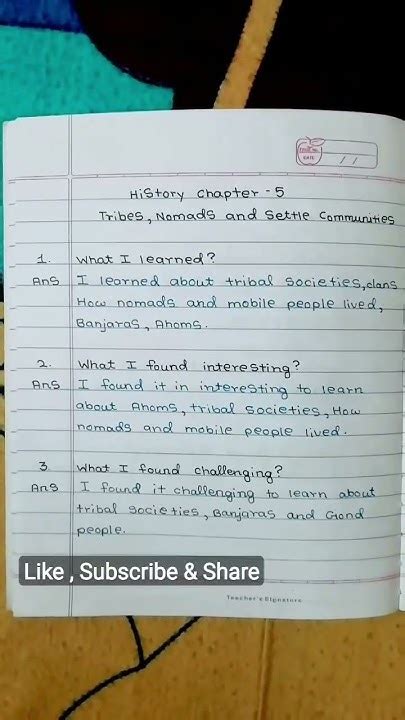 PAGE NO.
DATE
/ /
History Chapter - 5
Tribes, Nomads and Settle Communities
1. What I learned?
Ans I learned about tribal societies, clans
How nomads and mobile people lived,
Banjaras, Ahoms.
2. What I found interesting?
Ans I found it in interesting to learn
about Ahoms, tribal societies, How
nomads and mobile people lived.
3. What I found challenging?
Ans I found it challenging to learn about
tribal societies, Banjaras and Gond
people.
Like , Subscribe & Share
Teacher's Signature